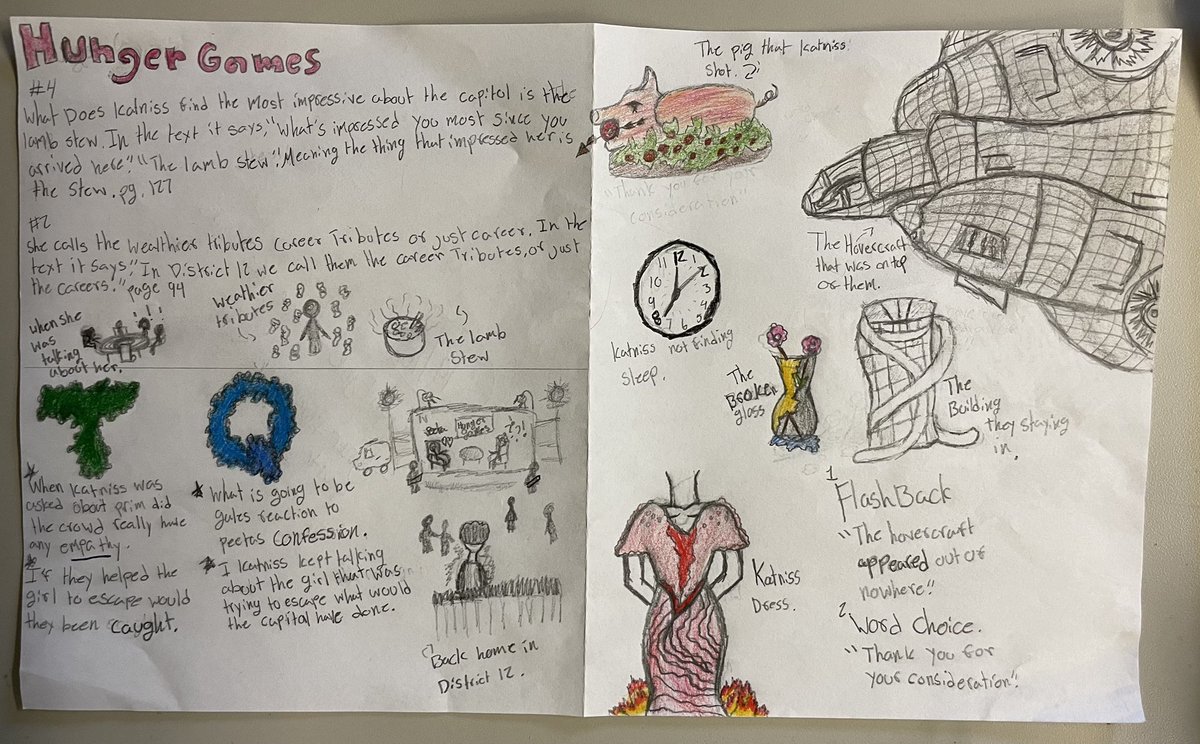 Hunger Games
#4
What Does Katniss find the most impressive about the capitol is the
lamb stew. In the text it says, "What's impressed you most since you
arrived here?" "The lamb stew". Meaning the thing that impressed her is
the stew. pg. 127
#2
She calls the wealthier tributes career Tributes or just career. In the
text it says." In District 12 we call them the career Tributes, or just
the careers." page 94
when she
was
talking
about her.
weathier
tributes
The lamb
stew
T
When Katniss was
asked about prim did
the crowd really have
any empathy.
If they helped the
girl to escape would
they been caught.
Q
What is going to be
gales reaction to
peetas confession.
I Katniss kept talking
about the girl that was
trying to escape what would
the capital have done.
TV
Hunger
Games
Back home in
District 12.
The pig that Katniss
shot. 2
"Thank you for your
consideration"
The Hovercraft
that was on top
of them.
11 12 1
10 2
9 3
8 4
7 6 5
Katniss not finding
sleep.
The
Broken
glass
The
Building
they staying
in.
Katniss
Dress.
1
FlashBack
"The hovercraft
appeared out of
nowhere".
2
Word Choice.
"Thank you for
your consideration".